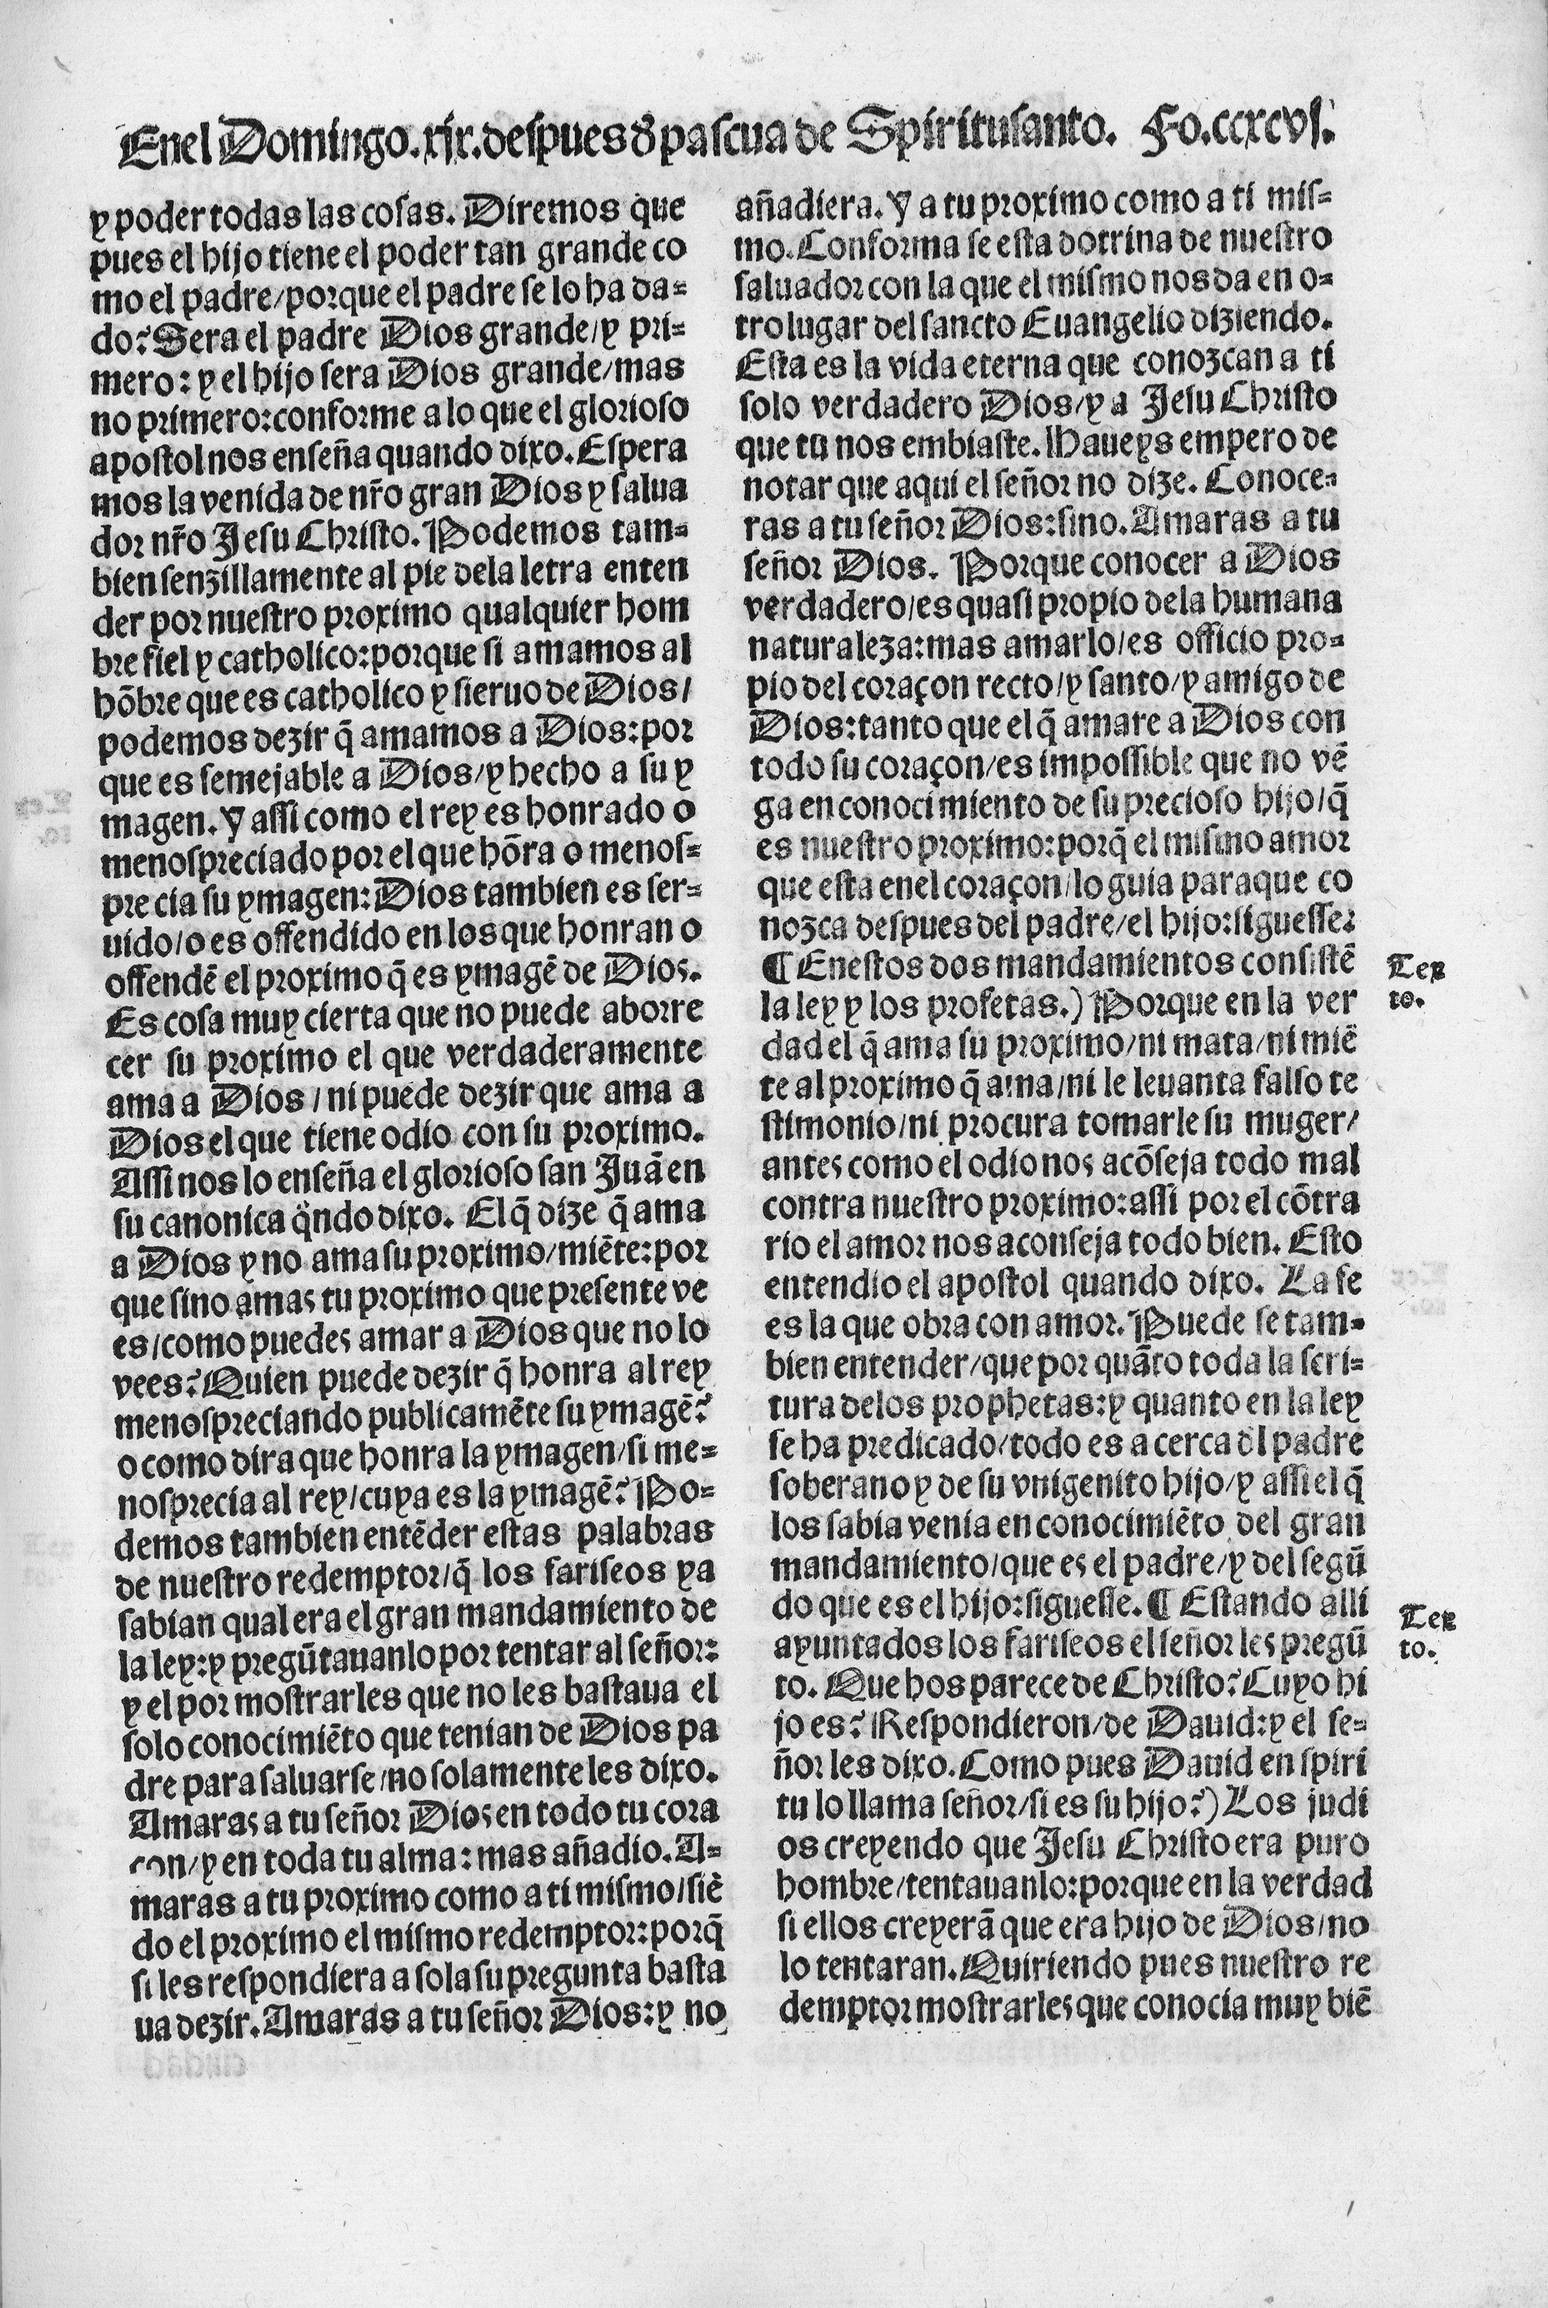 Enel Domingo.xix.despues d̃ pascua de Spiritusanto. Fo.ccxcvj.
y poder todas las cosas. Diremos que
pues el hijo tiene el poder tan grande co
mo el padre/porque el padre se lo ha da-
do? Sera el padre Dios grande/y pri-
mero: y el hijo sera Dios grande/mas
no primero: conforme a lo que el glorioso
apostol nos enseña quando dixo. Espera
mos la venida de nr̃o gran Dios y salua
dor nr̃o Jesu Christo. Podemos tam-
bien senzillamente al pie dela letra enten
der por nuestro proximo qualquier hom
bre fiel y catholico: porque si amamos al
hõbre que es catholico y sieruo de Dios/
podemos dezir q̃ amamos a Dios: por
que es semejable a Dios/y hecho a su y
magen. Y assi como el rey es honrado o
menospreciado por el que hõra o menos-
precia su ymagen: Dios tambien es ser-
uido/o es offendido en los que honran o
offendẽ el proximo q̃ es ymagẽ de Dios.
Es cosa muy cierta que no puede aborre
cer su proximo el que verdaderamente
ama a Dios/ni puede dezir que ama a
Dios el que tiene odio con su proximo.
Assi nos lo enseña el glorioso san Juã en
su canonica q̃ndo dixo. El q̃ dize q̃ ama
a Dios y no ama su proximo/miẽte: por
que sino amas tu proximo que presente ve
es/como puedes amar a Dios que no lo
vees? Quien puede dezir q̃ honra al rey
menospreciando publicamẽte su ymagẽ?
o como dira que honra la ymagen/si me-
nosprecia al rey/cuya es la ymagẽ? Po-
demos tambien entẽder estas palabras
de nuestro redemptor/q̃ los fariseos ya
sabian qual era el gran mandamiento de
la ley: y pregũtauanlo por tentar al señor:
y el por mostrarles que no les bastaua el
solo conocimiẽto que tenian de Dios pa
dre para saluarse/no solamente les dixo.
Amaras a tu señor Dios en todo tu cora
con/y en toda tu alma: mas añadio. A-
maras a tu proximo como a ti mismo/siẽ
do el proximo el mismo redemptor: porq̃
si les respondiera a sola su pregunta basta
ua dezir. Amaras a tu señor Dios: y no
añadiera. Y a tu proximo como a ti mis-
mo. Conforma se esta dotrina de nuestro
saluador con la que el mismo nos da en o-
tro lugar del sancto Euangelio diziendo.
Esta es la vida eterna que conozcan a ti
solo verdadero Dios/y a Jesu Christo
que tu nos embiaste. Haueys empero de
notar que aqui el señor no dize. Conoce-
ras a tu señor Dios: sino. Amaras a tu
señor Dios. Porque conocer a Dios
verdadero/es quasi propio dela humana
naturaleza: mas amarlo/es officio pro-
pio del coraçon recto/y santo/y amigo de
Dios: tanto que el q̃ amare a Dios con
todo su coraçon/es impossible que no vẽ
ga en conocimiento de su precioso hijo/q̃
es nuestro proximo: porq̃ el mismo amor
que esta enel coraçon/lo guia paraque co
nozca despues del padre/el hijo: siguesse:
¶ Enestos dos mandamientos consistẽ
la ley y los profetas.) Porque en la ver
dad el q̃ ama su proximo/ni mata/ni miẽ
te al proximo q̃ ama/ni le leuanta falso te
stimonio/ni procura tomarle su muger/
antes como el odio nos acõseja todo mal
contra nuestro proximo: assi por el cõtra
rio el amor nos aconseja todo bien. Esto
entendio el apostol quando dixo. La fe
es la que obra con amor. Puede se tam-
bien entender/que por quãto toda la scri-
tura delos prophetas: y quanto en la ley
se ha predicado/todo es acerca d̃l padre
soberano y de su vnigenito hijo/y assi el q̃
los sabia venia en conocimiẽto del gran
mandamiento/que es el padre/y del segũ
do que es el hijo: siguesse. ¶ Estando alli
ayuntados los fariseos el señor les pregũ
to. Que hos parece de Christo? Cuyo hi
jo es? Respondieron/de Dauid: y el se-
ñor les dixo. Como pues Dauid en spiri
tu lo llama señor/si es su hijo?) Los judi
os creyendo que Jesu Christo era puro
hombre/tentauanlo: porque en la verdad
si ellos creyerã que era hijo de Dios/no
lo tentaran. Quiriendo pues nuestro re
demptor mostrarles que conocia muy biẽ
Tex
to.
Tex
to.